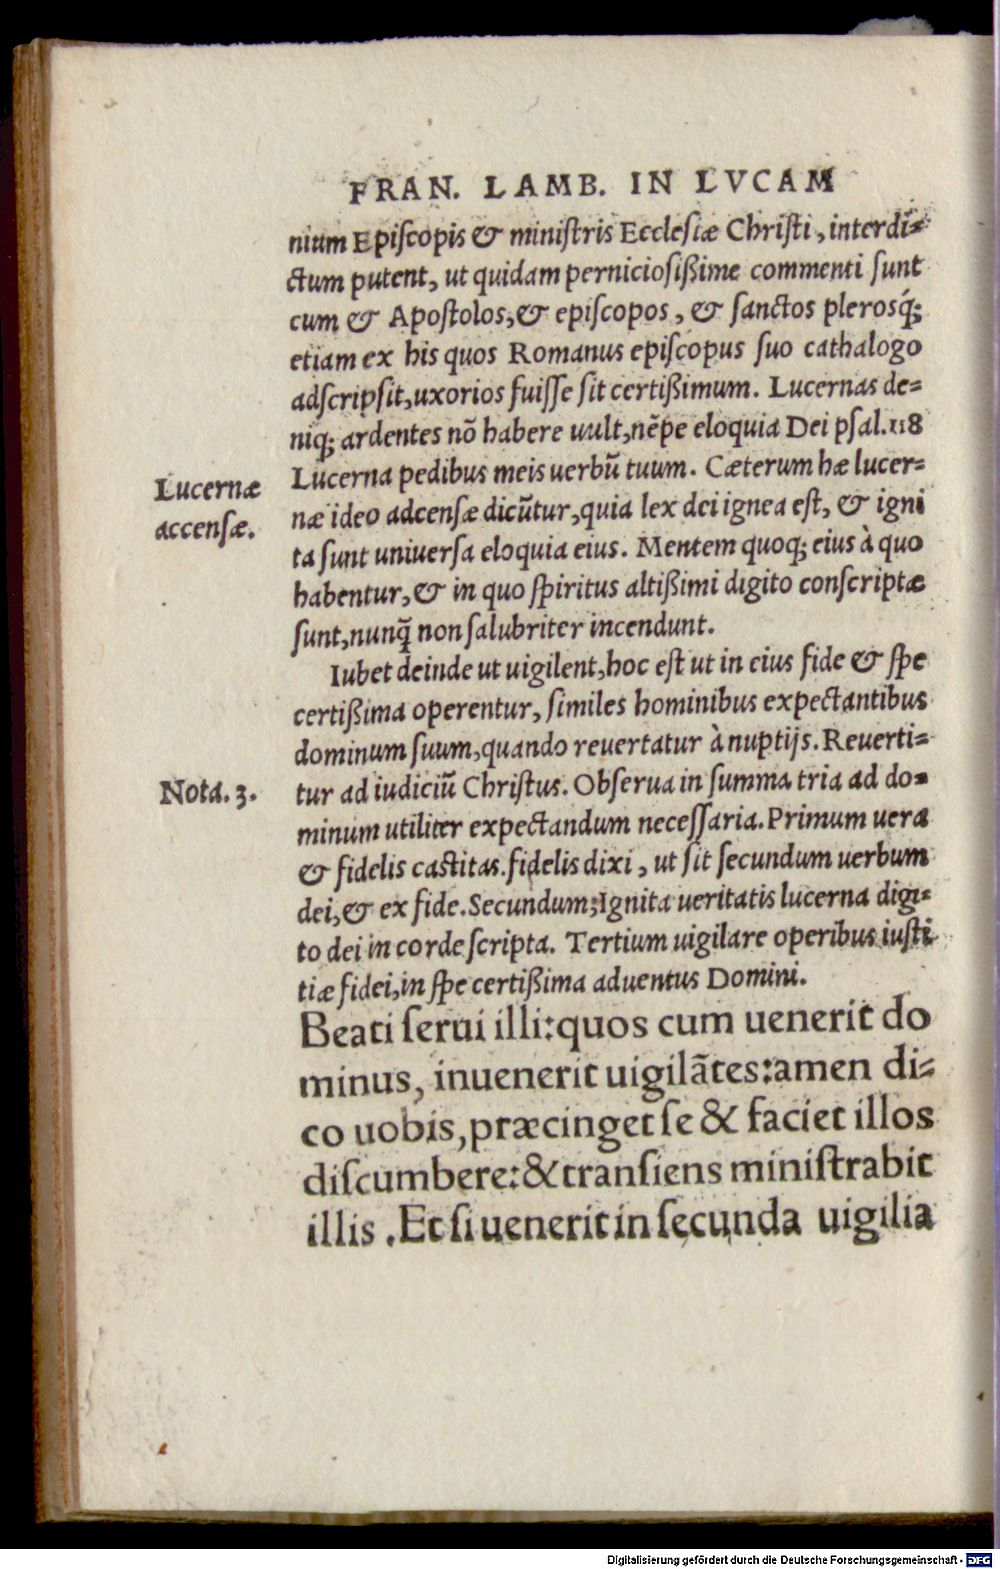 FRAN. LAMB. IN LVCAM
nium Epiſcopis & miniſtris Eccleſiæ Chriſti, interdi⸗
ctum putent, ut quidam pernicioſißime commenti ſunt
cum & Apoſtolos, & epiſcopos, & ſanctos pleroſq́;
etiam ex his quos Romanus epiſcopus ſuo cathalogo
adſcripſit, uxorios fuiſſe ſit certißimum. Lucernas de⸗
niq; ardentes nõ habere uult, nẽpe eloquia Dei pſal. 118
Lucerna pedibus meis uerbũ tuum. Cæterum hæ lucer⸗
Lucernæ
næ ideo adcenſæ dicũtur, quia lex dei ignea eſt, & igni
accenſæ.
ta ſunt uniuerſa eloquia eius. Mentem quoq; eius à quo
habentur, & in quo ſpiritus altißimi digito conſcriptæ
ſunt, nunq̃ non ſalubriter incendunt.
Iubet deinde ut uigilent, hoc eſt ut in eius fide & ſpe
certißima operentur, ſimiles hominibus expectantibus
dominum ſuum, quando reuertatur à nuptijs. Reuerti⸗
Nota. 3.
tur ad iudiciũ Chriſtus. Obſerua in ſumma tria ad do⸗
minum utiliter expectandum neceſſaria. Primum uera
& fidelis caſtitas. fidelis dixi, ut ſit ſecundum uerbum
dei, & ex fide. Secundum; Ignita ueritatis lucerna digi⸗
to dei in corde ſcripta. Tertium uigilare operibus iuſti
tiæ fidei, in ſpe certißima aduentus Domini.
Beati ſerui illi: quos cum uenerit do
minus, inuenerit uigilãtes: amen di⸗
co uobis, præcinget ſe & faciet illos
diſcumbere: & tranſiens miniſtrabit
illis. Et ſi uenerit in ſecunda uigilia
Digitalisierung gefördert durch die Deutsche Forschungsgemeinschaft - DFG